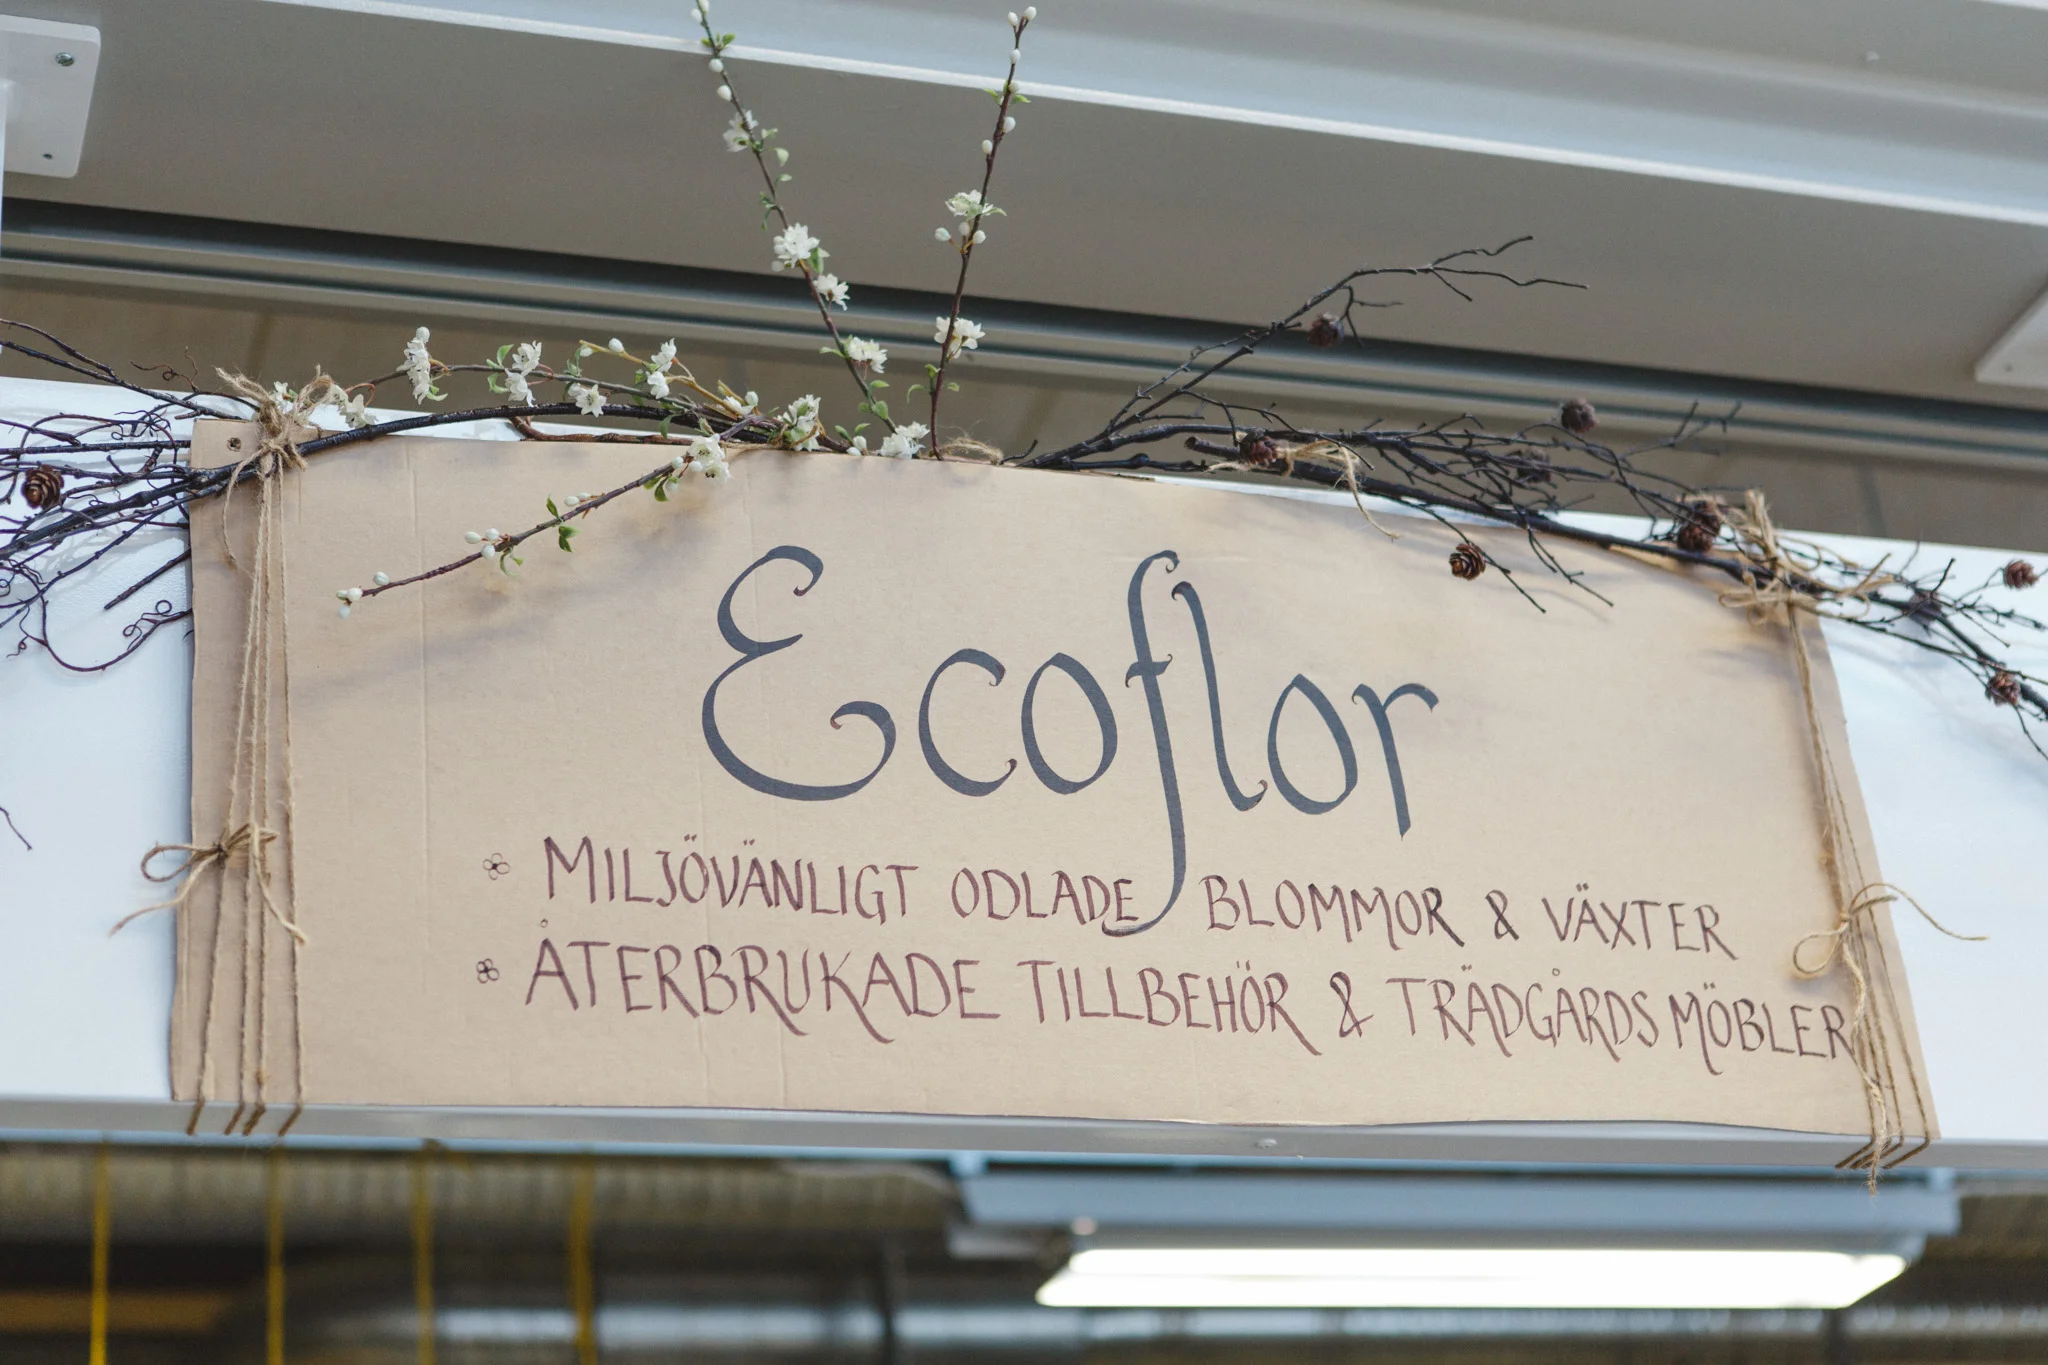 Ecoflor
MILJÖVÄNLIGT ODLADE BLOMMOR & VÄXTER
ÅTERBRUKADE TILLBEHÖR & TRÄDGÅRDSMÖBLER